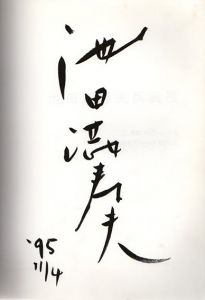 池田満寿夫
'95
11/4